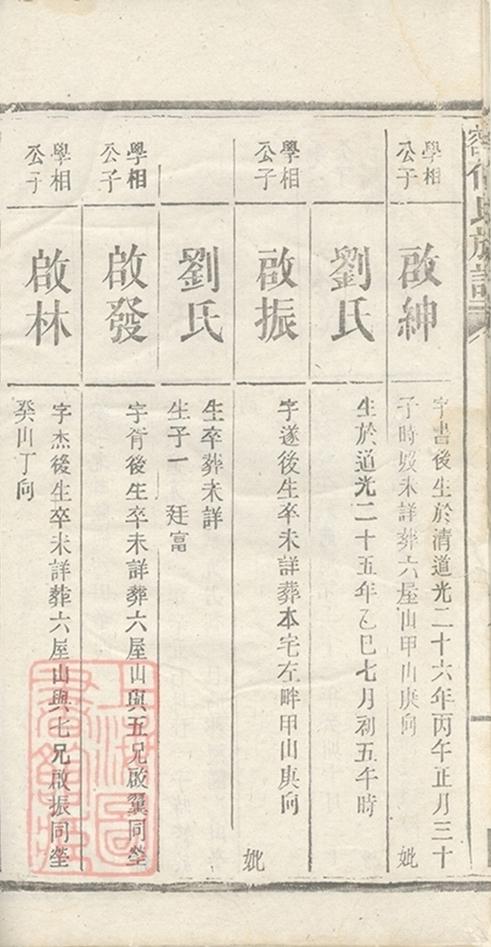 氏族譜
學相
公子
啟紳
字書後生於清道光二十六年丙午正月三十
子時歿未詳葬六屋山甲山庚向　妣
劉氏
生於道光二十五年乙巳七月初五午時
學相
公子
啟振
字遂後生卒未詳葬本宅左畔甲山庚向
妣
劉氏
生卒葬未詳
生子一　廷富
學相
公子
啟發
字胥後生卒未詳葬六屋山與五兄啟翼同塋
學相
公子
啟林
字杰後生卒未詳葬六屋山與七兄啟振同塋
癸山丁向
上海圖書館藏